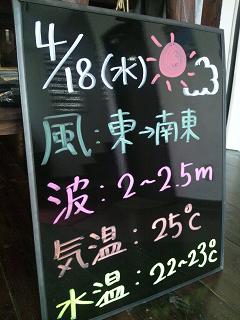 4/18(水)
風:東→南東
波:2~2.5m
気温:25℃
水温:22~23℃